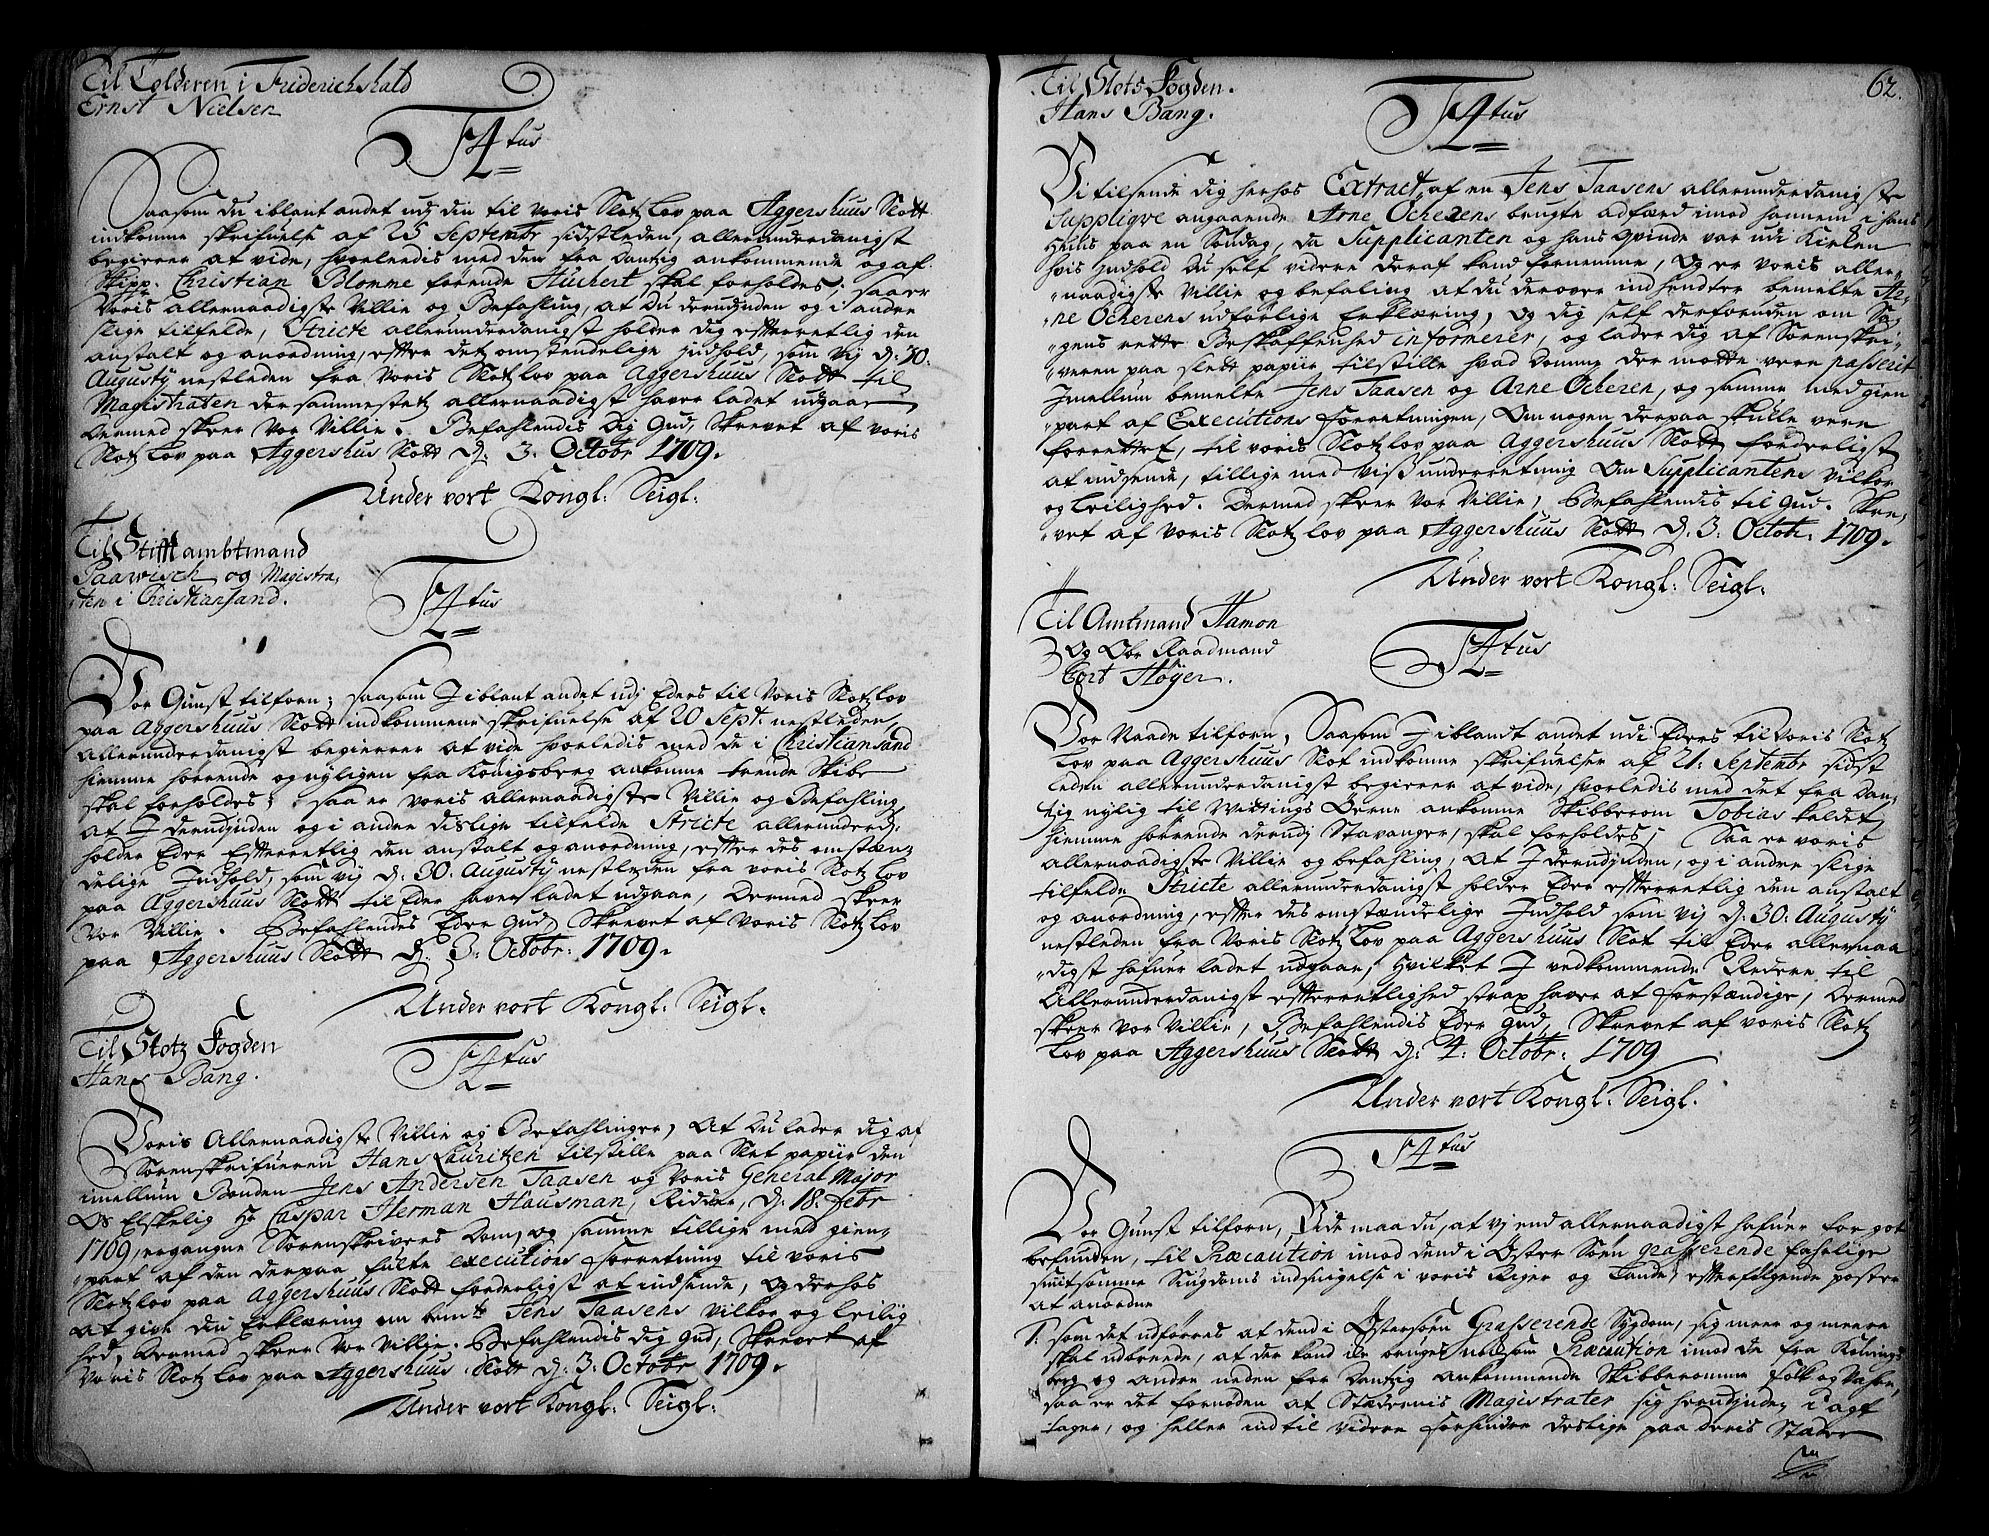 Til Tolderen i Friderichshald
Ernst Nielsen
F4tus
Saasom du iblant andet udj din til Voris Slotz Lov paa Aggershuus Slott
indkomne skrifuelse af 25 Septembr sidstleden, allerunderdanigst
begierer at vide, hvorledis med den fra Dantzig ankommende og af
Skipp. Christian Blomme førende Huchert skal forholdes; saa er
Voris allernaadigste Villie og Befahling, at Du derudjnden og i andre
slige tilfelde, Stricte allerunderdanigst holder dig efterretlig den
anstalt og anordning, efter det omstendelige Jndhold, som Vij d: 30.
Augustij nestleden fra Voris Slotz Lov paa Aggershuus Slott til
Magistraten dersammestetz allernaadigst haver ladet udgaae,
Dermed skeer Vor Villie. Befahlendis Dig Gud, Skrevet af Voris
Slotz Lov paa Aggershus Slott d: 3. Octobr 1709.
Under vort Kongl: Seigl:
Til Stifftambtmand
Paawisch og Magistra-
ten i Christiansand.
F4tus
Vor Gunst tilforn; saasom J iblant andet udj Eders til Voris Slotz Lov
paa Aggershuus Slott indkomne skrifuelse af 20 Sept: nestleden,
allerunderdanigst begierer at vide hvorledis med de i Christiansand
hiemme hørende og nyligen fra Königsberg ankomne trende Skibe
skal forholdes; saa er Voris allernaadigste Villie og Befahling,
at J derudjnden og i andre dislige tilfelde Stricte allerunderd:
holder Eder Efterretlig den anstalt og anordning, efter des omstæn-
delige Jndhold, som vij d: 30. Augustij nestleden fra voris Slotz Lov
paa Aggershuus Slott til Eder haver ladet udgaae, Dermed skeer
Vor Villie. Befahlendes Eder Gud, Skrevet af Voris Slotz Lov
paa Aggershuus Slott d: 3. Octobr: 1709.
Under vort Kongl: Seigl:
Til Slotz Fogden
Hans Bang.
F4tus
Voris Allernaadigste Villie og Befahlinger, At Du lader dig af
Sorenskrifueren Hans Lauritzen tilstille paa Slet papiir den
imellum Bonden Jens Andersen Taasen og Voris General Major
Os Elskelig Hr Caspar Herman Hausman, Ridder, d: 18. Febr
1709, ergangne Sorenskrivers Dom, og samme tillige med gien-
part af den derpaa fulte executions Forretning til voris
Slotz Lov paa Aggershuus Slott forderligst at indsende, og derhos
at give din Erklæring om bemte Jens Taasens Vilkor og Leilig
hed, Dermed skeer Vor Villie. Befahlendis dig Gud, Skrevet af
Voris Slotz Lov paa Aggershuus Slott d: 3. Octobr 1709.
Under vort Kongl: Seigl:
62.
Til Slots Fogden.
Hans Bang.
F4tus
Vi tilsende dig herhos Extract, af en Jens Taasens allerunderdanigste
Suppliqve angaaende Arne Ocherens brugte adfærd imod hannem i hans
Huus paa en Søndag, da Supplicanten og hans Qvinde var udi Kirken
hvis Jndhold Du self videre deraf kand fornemme, Og er Voris aller-
naadigste Villie og befaling at du derover indhendter bemelte Ar-
ne Ocherens udførlige Erklæring, Og dig self derforuden om Sa-
gens rette Beskaffenhed informerer, og lader dig af Sorenskri-
veren paa slett papiir tilstille hvad Domme der motte vere passerit
Jmellum bemelte Jens Taasen og Arne Ocheren, og samme med gien
part af Executions Forretningen, Om nogen derpaa skulle vere
forrettet, til voris Slotz Lov paa Aggershuus Slott forderligst
at indsende, tillige med viß underretning Om Supplicantens vilkor
og Leilighed. Dermed skeer Vor Villie, Befahlendis til Gud. Skre-
vet af Voris Slotz Lov paa Aggershuus Slott d. 3: Octobr: 1709.
Under vort Kongl: Seigl:
Til Amtmand Hamon
Og Obr Raadmand
Cort Høyer.
F4tus
Vor Naade tilforn, Saasom J iblandt andet udi Eders til Voris Slotz
Lov paa Aggershuus Slot indkomne skrifuelse af 21: Septembr sidst
leden allerunderdanigst begierer at vide, hvorledis med det fra Dan-
tzig nylig til Wittings Øerne ankomne Skibberom Tobias kaldet,
hiemme hørende derudj Stavanger, skal forholdes; Saa er voris
allernaadigste Villie og befahling, at J derudjnden, og i andre slige
tilfelde Stricte allerunderdanigst holder Eder efterretlig den anstalt
og anordning, efter des omstændelige Jndhold som vij d: 30. Augustij
nestleden fra Voris Slotz Lov paa Aggershuus Slot til Eder allernaa
digst hafuer ladet udgaae, hvilket J vedkommende Redere til
Allerunderdanigst efterretlighed strax haver at forstændige, Dermed
skeer Vor Villie, Befahlendis Eder Gud, Skrevet af voris Slotz
Lov paa Aggershuus Slott d: 4: Octobr: 1709
Under vort Kongl: Seigl:
F4tus
Vor Gunst tilforn, Vide maa du, at vj end allernaadigst hafuer for got
befunden, til Præcaution imod dend i Øster Søen grasserende fahrlige
smitsomme Siugdoms indsnigelse i voris Riger og Lande, efterfølgende poster
at anordne
1: som det udførres at dend i Østersøen Grasserende Sygdom, sig meer og meere
skal udbreede, at der kand ey bruges nocksom Præcaution imod de fra Königs
berg og andre neden for Dantzig ankommende Skibberomme folk og Vahre,
saa er det fornøden at Stædernis Magistrater sig herudjnden i agt
tager, og heller indtil videre forhindre deslige paa deris Stæder